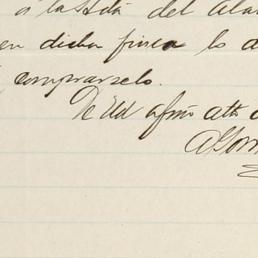 á la Sda del Ala
en dicha finca lo d
comprarselo.
De Ud afmo atto
AGom